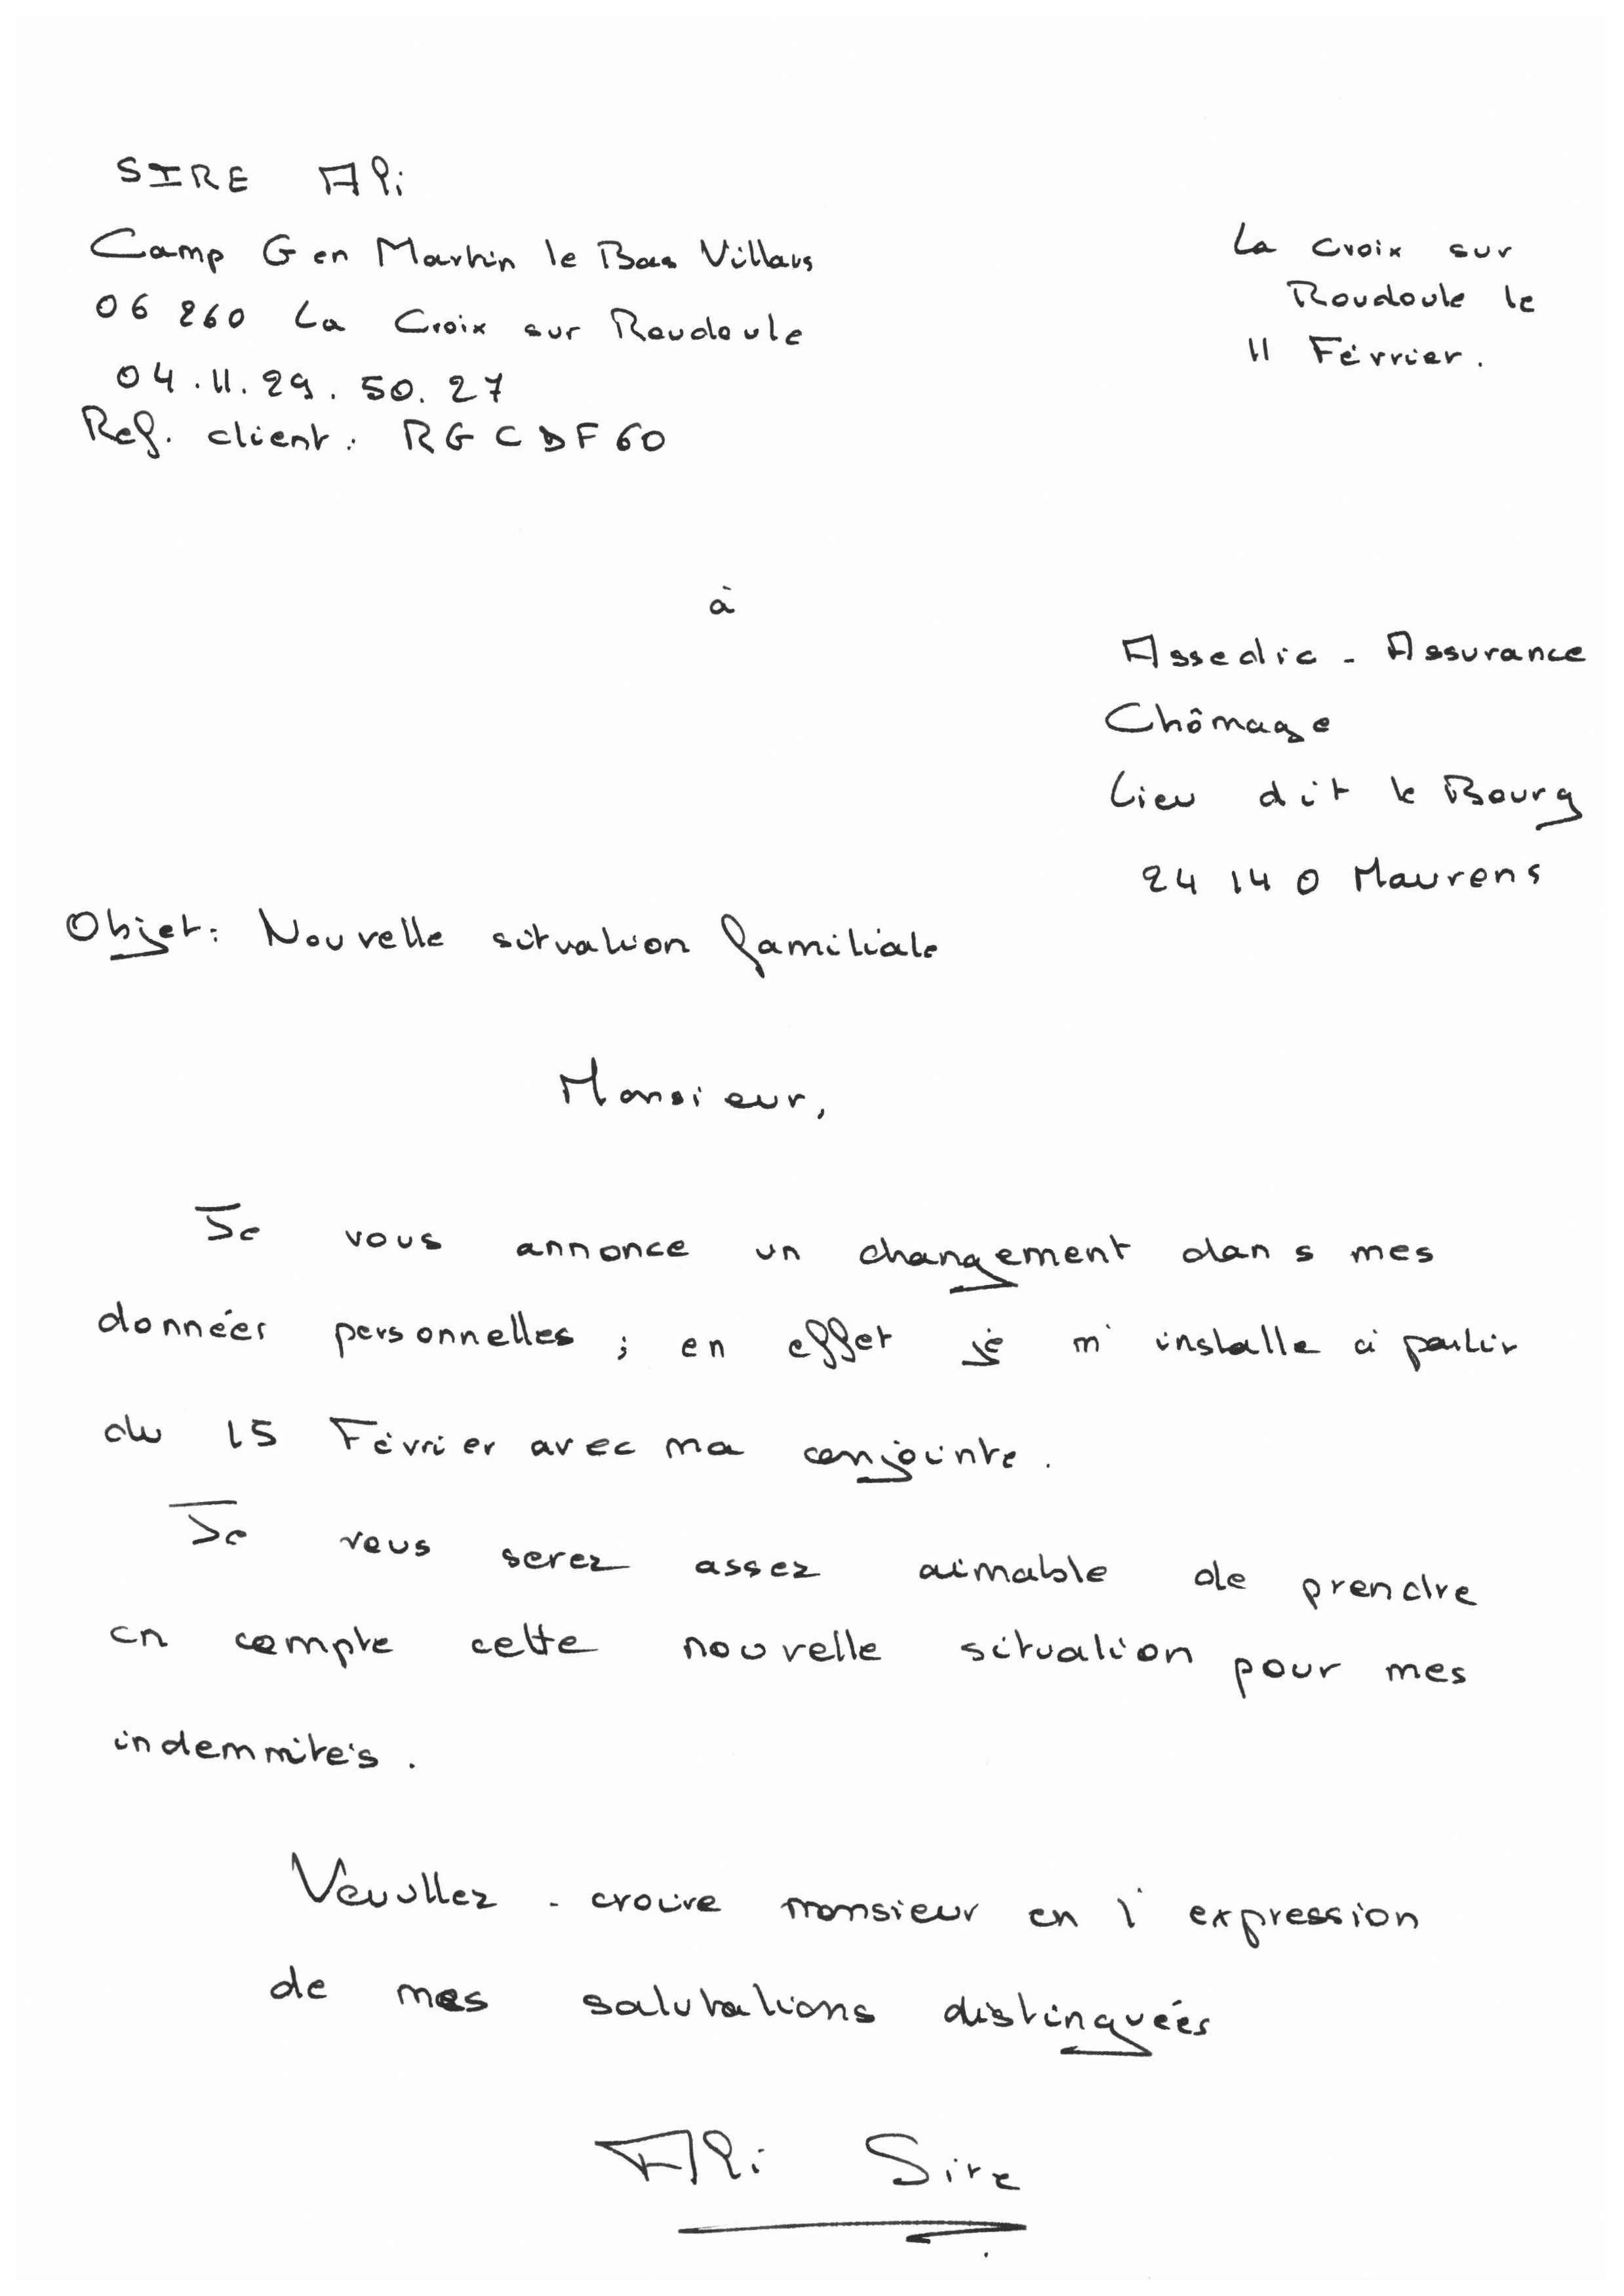 SIRE Ali
Camp Gen Martin le Bas Villars
06 260 La Croix sur Roudoule
04.11.29.50.27
Ref. client : RGCDF60
La Croix sur
Roudoule le
11 Février.
à
Assedic - Assurance
Chômage
Lieu dit le Bourg
24 140 Maurens
Objet : Nouvelle situation familiale
Monsieur,
Je vous annonce un changement dans mes
données personnelles ; en effet je m'installe à partir
du 15 Février avec ma conjointe.
Je vous serez assez aimable de prendre
en compte cette nouvelle situation pour mes
indemmités.
Veuillez - croire monsieur en l'expression
de mes salutations distinguées
Ali Sire